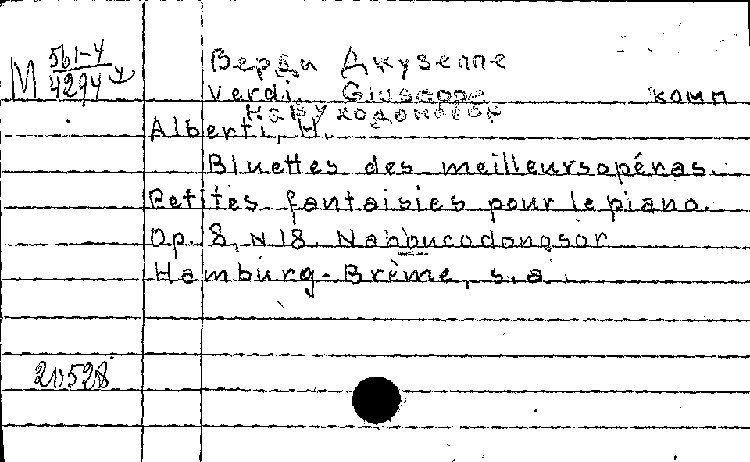 M 561-4
4294
Верди Джузеппе
Verdi, Giuseppe комп
Навуходоносор
Alberti, H.
Bluettes des meilleurs opéras.
Petites fantaisies pour le piano.
Op. 8, N 18. Nabbucodonosor
Hamburg-Brème, s.a.
20528